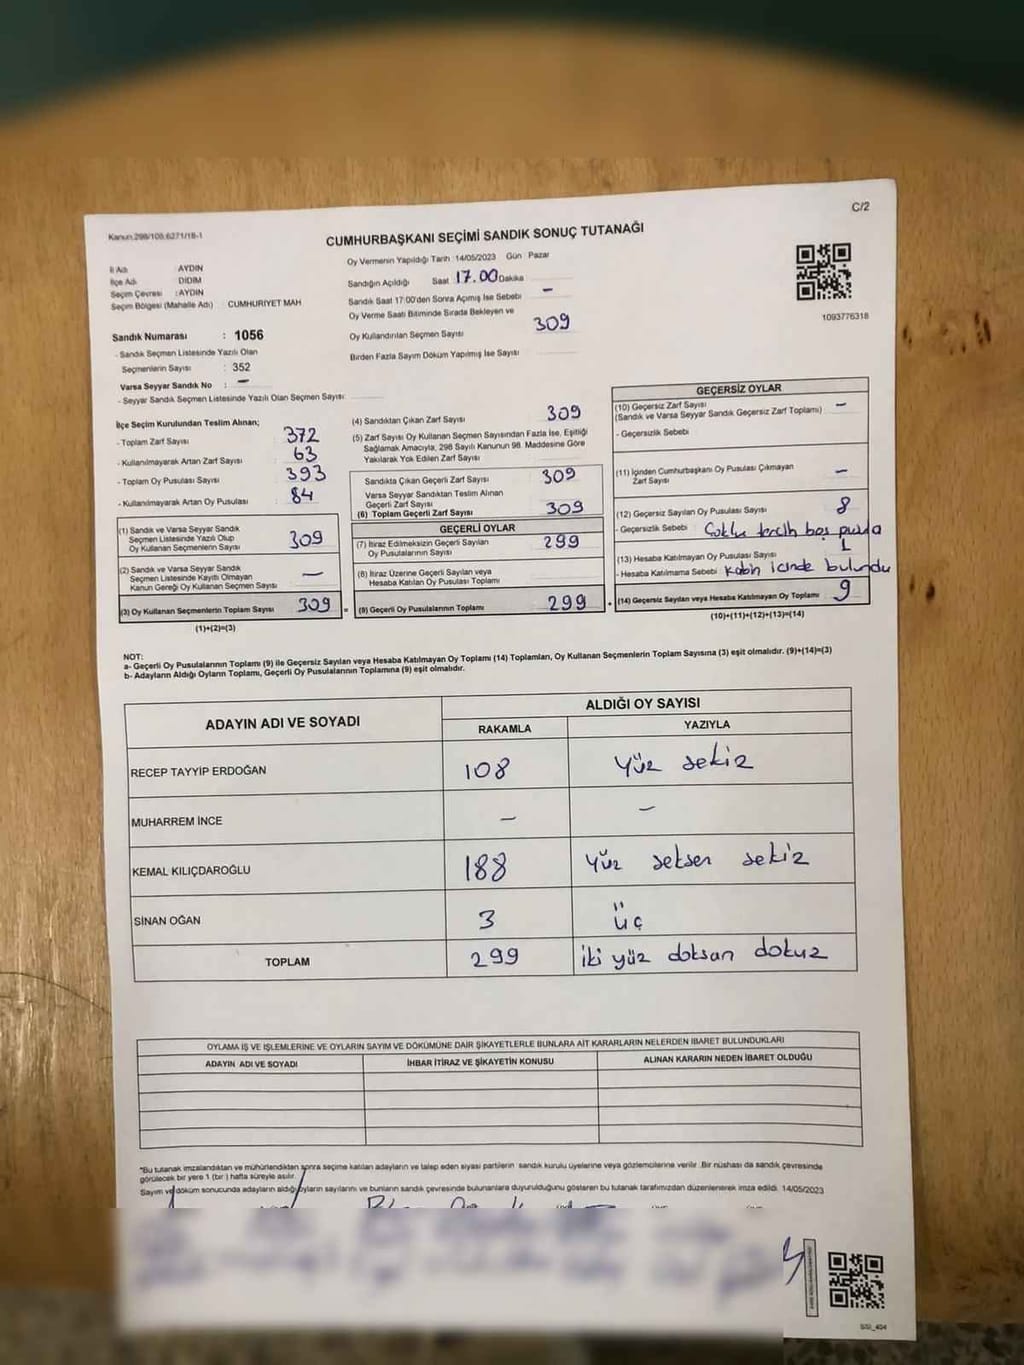 C/2
Kanun:298/105,6271/18-1
CUMHURBAŞKANI SEÇİMİ SANDIK SONUÇ TUTANAĞI
İl Adı : AYDIN
İlçe Adı : DİDİM
Seçim Çevresi : AYDIN
Seçim Bölgesi (Mahalle Adı) CUMHURİYET MAH
Oy Vermenin Yapıldığı Tarih 14/05/2023 Gün Pazar
Sandığın Açıldığı Saat 17.00 Dakika
Sandık Saat 17:00'den Sonra Açımış İse Sebebi -
Oy Verme Saati Bitiminde Sırada Bekleyen ve
Oy Kullandırılan Seçmen Sayısı 309
Birden Fazla Sayım Döküm Yapılmış İse Sayısı
1093776318
Sandık Numarası : 1056
- Sandık Seçmen Listesinde Yazılı Olan
Seçmenlerin Sayısı : 352
Varsa Seyyar Sandık No : -
- Seyyar Sandık Seçmen Listesinde Yazılı Olan Seçmen Sayısı:
İlçe Seçim Kurulundan Teslim Alınan;
- Toplam Zarf Sayısı 372
- Kullanılmayarak Artan Zarf Sayısı 63
- Toplam Oy Pusulası Sayısı 393
- Kullanılmayarak Artan Oy Pusulası 84
(1) Sandık ve Varsa Seyyar Sandık
Seçmen Listesinde Yazılı Olup
Oy Kullanan Seçmenlerin Sayısı 309
(2) Sandık ve Varsa Seyyar Sandık
Seçmen Listesinde Kayıtlı Olmayan
Kanun Gereği Oy Kullanan Seçmen Sayısı -
(3) Oy Kullanan Seçmenlerin Toplam Sayısı 309 =
(1)+(2)=(3)
(4) Sandıktan Çıkan Zarf Sayısı 309
(5) Zarf Sayısı Oy Kullanan Seçmen Sayısından Fazla İse, Eşitliği
Sağlamak Amacıyla, 298 Sayılı Kanunun 98. Maddesine Göre
Yakılarak Yok Edilen Zarf Sayısı
Sandıkta Çıkan Geçerli Zarf Sayısı 309
Varsa Seyyar Sandıktan Teslim Alınan
Geçerli Zarf Sayısı
(6) Toplam Geçerli Zarf Sayısı 309
GEÇERLİ OYLAR
(7) İtiraz Edilmeksizin Geçerli Sayılan
Oy Pusulalarının Sayısı 299
(8) İtiraz Üzerine Geçerli Sayılan veya
Hesaba Katılan Oy Pusulası Toplamı
(9) Geçerli Oy Pusulalarının Toplamı 299 +
GEÇERSİZ OYLAR
(10) Geçersiz Zarf Sayısı
(Sandık ve Varsa Seyyar Sandık Geçersiz Zarf Toplamı) -
- Geçersizlik Sebebi
(11) İçinden Cumhurbaşkanı Oy Pusulası Çıkmayan
Zarf Sayısı -
(12) Geçersiz Sayılan Oy Pusulası Sayısı 8
- Geçersizlik Sebebi Çoklu tercih boş pusula
(13) Hesaba Katılmayan Oy Pusulası Sayısı 1
- Hesaba Katılmama Sebebi Kabin içinde bulundu
(14) Geçersiz Sayılan veya Hesaba Katılmayan Oy Toplamı 9
(10)+(11)+(12)+(13)=(14)
NOT:
a- Geçerli Oy Pusulalarının Toplamı (9) ile Geçersiz Sayılan veya Hesaba Katılmayan Oy Toplamı (14) Toplamları, Oy Kullanan Seçmenlerin Toplam Sayısına (3) eşit olmalıdır. (9)+(14)=(3)
b- Adayların Aldığı Oyların Toplamı, Geçerli Oy Pusulalarının Toplamına (9) eşit olmalıdır.
ADAYIN ADI VE SOYADI ALDIĞI OY SAYISI
RAKAMLA YAZIYLA
RECEP TAYYİP ERDOĞAN 108 yüz sekiz
MUHARREM İNCE - -
KEMAL KILIÇDAROĞLU 188 yüz seksen sekiz
SİNAN OĞAN 3 üç
TOPLAM 299 iki yüz doksan dokuz
OYLAMA İŞ VE İŞLEMLERİNE VE OYLARIN SAYIM VE DÖKÜMÜNE DAİR ŞİKAYETLERLE BUNLARA AİT KARARLARIN NELERDEN İBARET BULUNDUKLARI
ADAYIN ADI VE SOYADI İHBAR İTİRAZ VE ŞİKAYETİN KONUSU ALINAN KARARIN NEDEN İBARET OLDUĞU
"Bu tutanak imzalandıktan ve mühürlendikten sonra seçime katılan adayların ve talep eden siyasi partilerin sandık kurulu üyelerine veya gözlemcilerine verilir. Bir nüshası da sandık çevresinde
görülecek bir yere 1 (bir) hafta süreyle asılır.
Sayım ve döküm sonucunda adayların aldığı oyların sayılarını ve bunların sandık çevresinde bulunanlara duyurulduğunu gösteren bu tutanak tarafımızdan düzenlenerek imza edildi. 14/05/2023